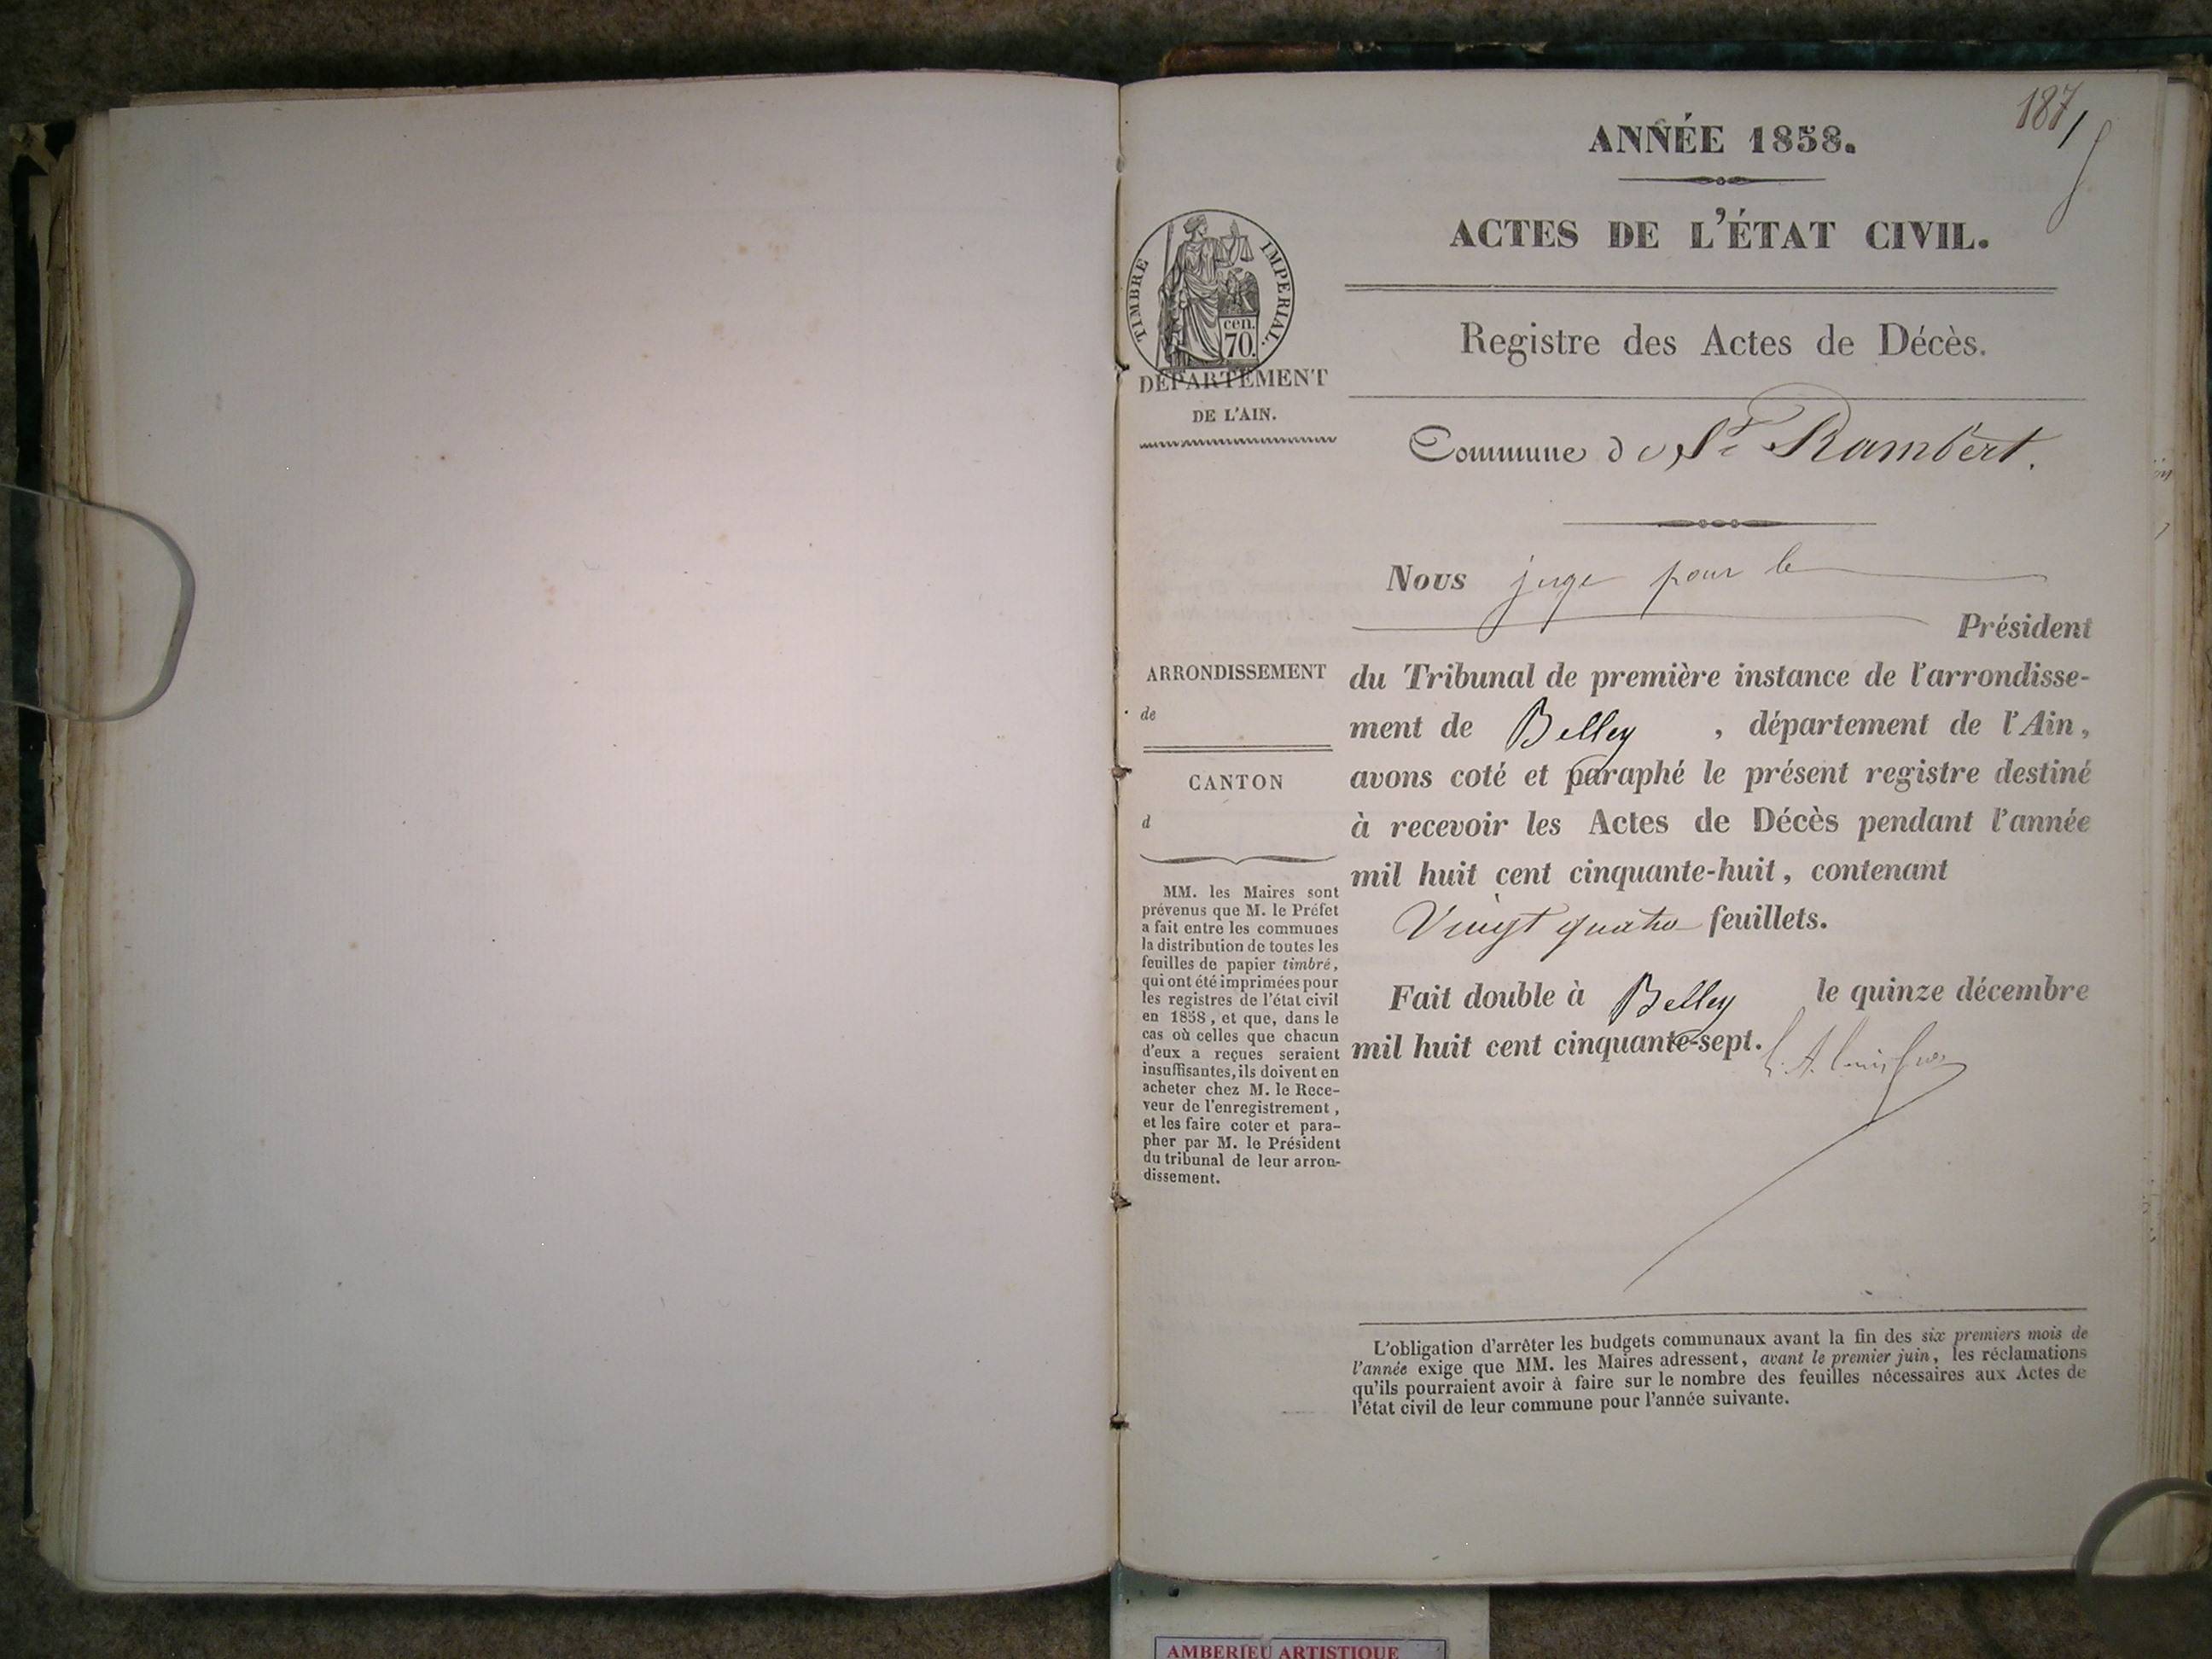 187
ANNÉE 1858.
ACTES DE L'ÉTAT CIVIL.
Registre des Actes de Décès.
Commune de St Rambert.
TIMBRE IMPERIAL.
cen.
70.
DÉPARTEMENT
DE L'AIN.
ARRONDISSEMENT
de
CANTON
d
MM. les Maires sont
prévenus que M. le Préfet
a fait entre les communes
la distribution de toutes les
feuilles de papier timbré,
qui ont été imprimées pour
les registres de l'état civil
en 1858, et que, dans le
cas où celles que chacun
d'eux a reçues seraient
insuffisantes, ils doivent en
acheter chez M. le Rece-
veur de l'enregistrement,
et les faire coter et para-
pher par M. le Président
du tribunal de leur arron-
dissement.
Nous juge pour le
Président
du Tribunal de première instance de l'arrondisse-
ment de Belley, département de l'Ain,
avons coté et paraphé le présent registre destiné
à recevoir les Actes de Décès pendant l'année
mil huit cent cinquante-huit, contenant
Vingt quatre feuillets.
Fait double à Belley le quinze décembre
mil huit cent cinquante-sept.
L'obligation d'arrêter les budgets communaux avant la fin des six premiers mois de
l'année exige que MM. les Maires adressent, avant le premier juin, les réclamations
qu'ils pourraient avoir à faire sur le nombre des feuilles nécessaires aux Actes de
l'état civil de leur commune pour l'année suivante.
AMBERIEU ARTISTIQUE